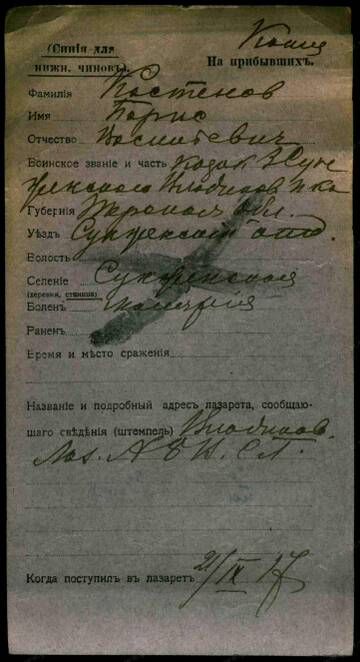 Копия
(Синія для
нижн. чиновъ).
На прибывшихъ.
Фамилія Костенов
Имя Борис
Отчество
Воинское званіе и часть Козак 3 Сун
женского Владиков п ка
Губернія обл.
Уѣздъ Сунженский отд.
Волость
Селеніе Сунженская
(деревня, станица)
Боленъ малярия
Раненъ
Время и мѣсто сраженія
Названіе и подробный адресъ лазарета, сообщаю-
щаго свѣдѣнія (штемпель) Владиков.
Лаз.
Когда поступилъ въ лазаретъ 21/IX 17